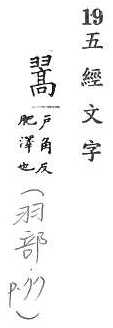 19 五經文字
翯
戶角反
肥澤也
(羽部 p.)